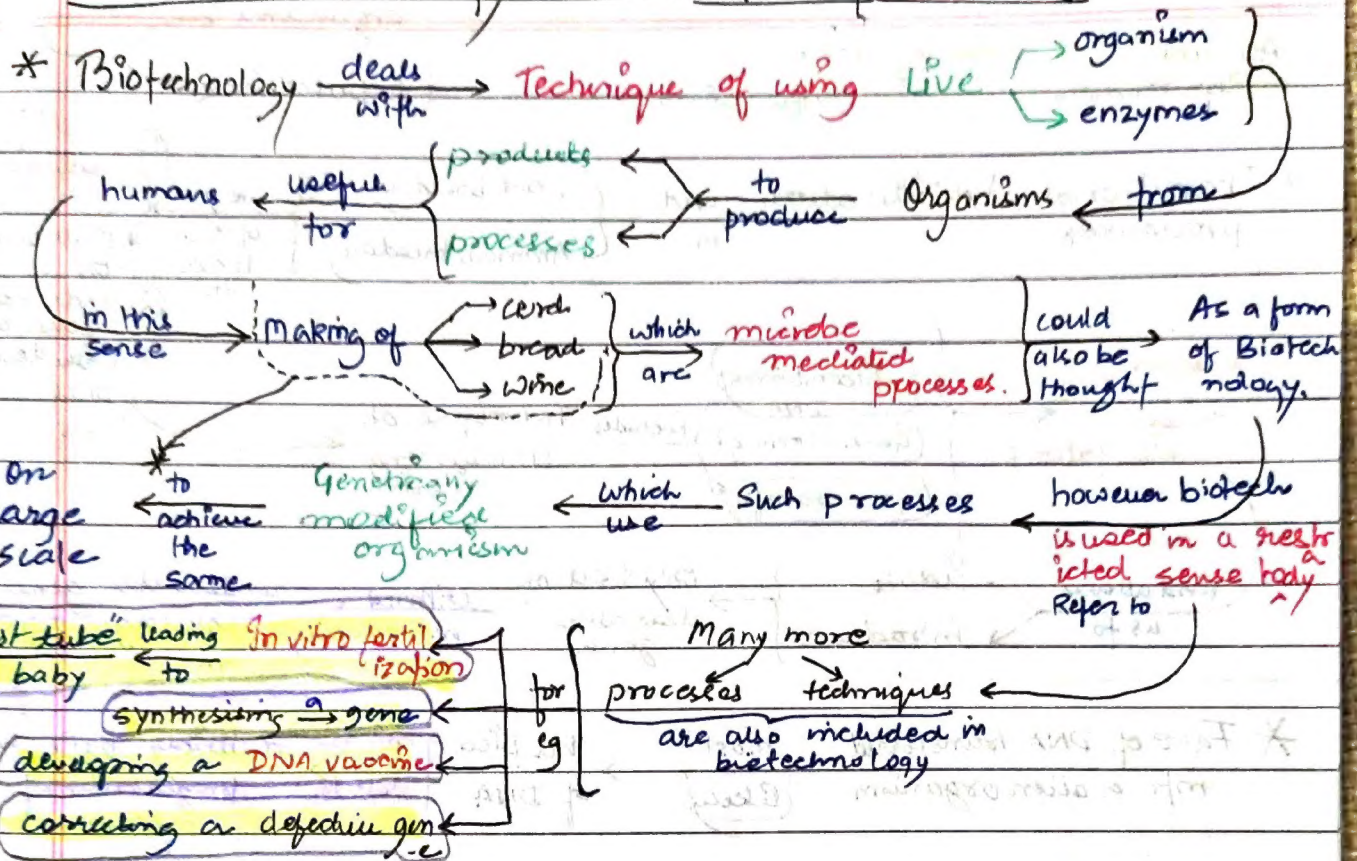 * Biotechnology deals with Technique of using Live organism
enzymes
from Organisms to produce products
processes
useful for humans
in this sense Making of curd
bread
wine
which are microbe mediated processes.
could also be thought As a form of Biotech
nology.
however biotech
is used in a restr
icted sense today
Refer to
Such processes which use Genetically
modified
organism
to achieve the same on
arge
scale
Many more
processes techniques
are also included in
biotechnology
for eg
In vitro fertil
ization leading to st tube"
baby
synthesising a gene
developing a DNA vaccine
correcting a defective gen
-e